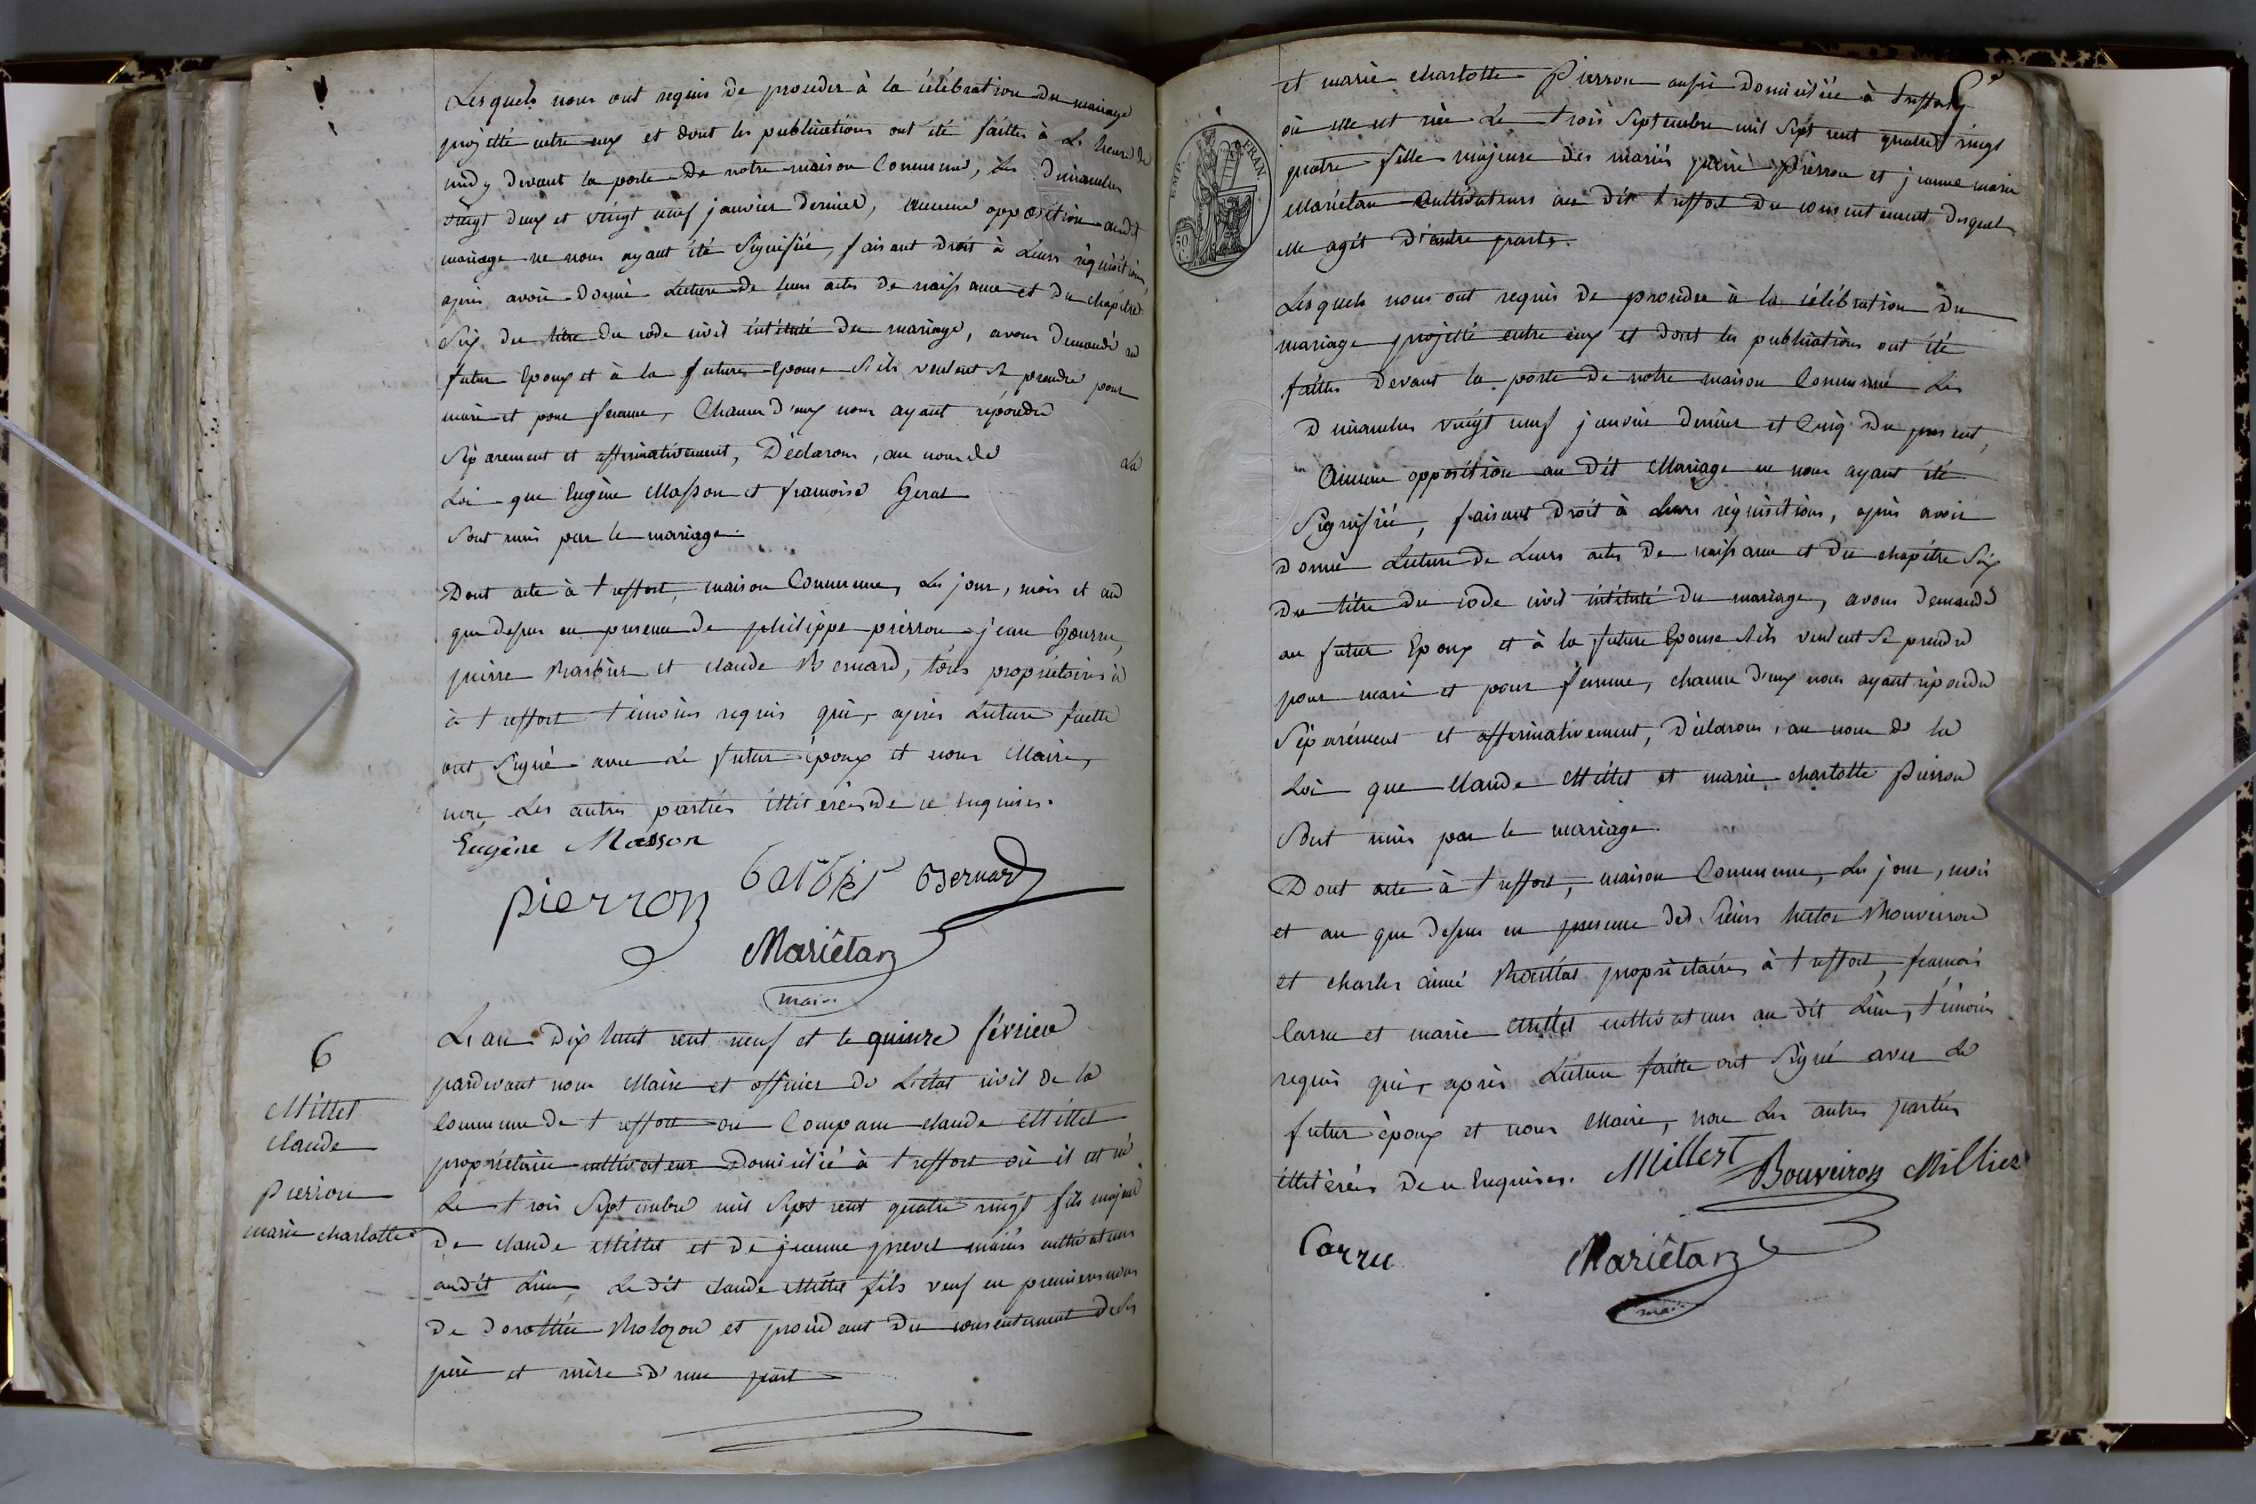 Lesquels nous ont requis de procéder à la célébration du mariage
projetté entre eux et dont les publications ont été faittes à L'heure de
midy devant la porte de notre maison Commune, les dimanches
vingt deux et vingt neuf janvier dernier, aucune opposition audit
mariage ne nous ayant été Signifiée, faisant droit à Leurs réquisitions
après avoir donné Lecture de leurs actes de naissance et du chapitre
Six du titre du code civil intitulé du mariage, avons demandé au
futur Epoux et à la future Epouse S'ils veulent se prendre pour
mari et pour femme, Chacun d'eux nous ayant répondu
Séparement et affirmativement, Déclarons, au nom de La
Loi que Eugène Masson et françoise Gerat
Sont unis par le mariage
Dont acte à treffort, maison Commune, Les jour, mois et an
que dessus en presence de philippe pierron jean
pierre Barbier et claude Bernard, tous propriétaires
à treffort témoins requis qui, après Lecture faitte
ont Signé avec Le futur époux et nous Maire,
non Les autres parties illitérées de ce Enquises.
Eugêne Masson
pierron barbier Bernard
Mariêtan
maire
6
Millet
claude
pierron
marie charlotte
L'an Dix huit cent neuf et le quinze février
pardevant nous Maire et officier de L'état civil de la
Commune de treffort ou Comparu claude Millet
propriétaire cultivateur Domicilié à treffort où il est né
Le trois Septembre mil Sept cent quatre vingt fils majeur
De claude Millet et de jeanne prevel mariés cultivateurs
audit Lieu, Le dit claude Millet fils veuf en premiers noces
De dorothée et procédant du consentement de ses
père et mère d'une part
et marie charlotte Pierron aussi Domiciliée à treffort
où elle est née Le trois Septembre mil Sept cent quatre vingt
quatre fille majeure des mariés pierre Pierron et jeanne marie
Mariétan Cultivateurs au dit treffort du consentement desquels
elle agit d'autre part.
EMP. FRAN
50 C.
Lesquels nous ont requis de procéder à la célébration du
mariage projetté entre eux et dont les publications ont été
faittes Devant la porte de notre maison Commune Les
Dimanches vingt neuf janvier dernier et Cinq du présent,
Aucune opposition au dit Mariage ne nous ayant été
Signifiée, faisant Droit à Leurs réquisitions, après avoir
Donné Lecture de Leurs actes de naissance et du chapitre Six
Du titre du code civil intitulé du mariage, avons demandé
au futur Epoux et à la future Epouse S'ils veulent Se prendre
pour mari et pour femme, chacun d'eux nous ayant répondu
Séparément et affirmativement, Déclarons, au nom de la
Loi que claude Millet et marie charlotte Pierron
Sont unis par le mariage.
Dont acte à treffort, maison Commune, Les jour, mois
et an que dessus en presence des Sieurs hector Bouveiron
et charles aimé propriétaires à treffort, françois
Carru et marie Millet cultivateurs au dit Lieu, témoins
requis qui, après Lecture faitte ont Signé avec Le
futur époux et nous Maire, non Les autres parties
illitérées de ce Enquises. Millest Bouveiron Milliet
Carru Mariêtan
maire